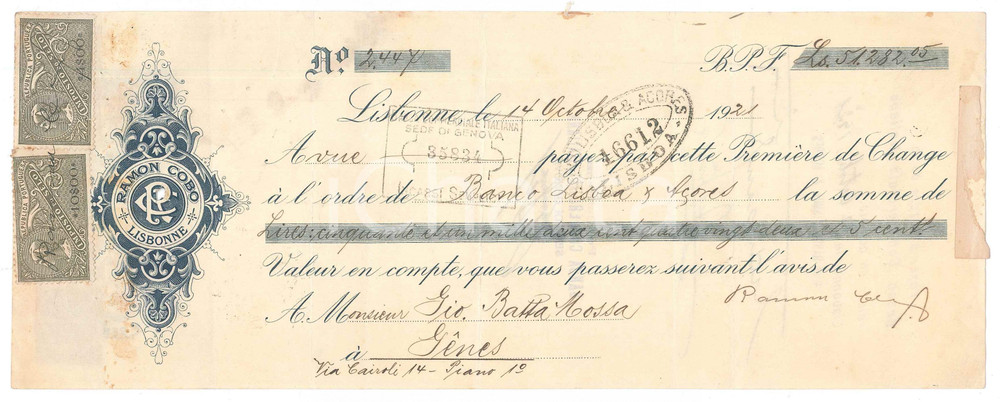 Nº 2447 B.P.F. Ls. 51.282.05
Lisbonne, le 14 Octobre 1921
A vue payez par cette Première de Change
à l'ordre de Banco Lisboa & Açores la somme de
Lires: cinquante et un mille deux cent quatre vingt deux et 5 centˢ
Valeur en compte, que vous passerez suivant l'avis de
A. Monsieur Gio. Batta Mossa
Ramon Cobo
à Gênes
Via Cairoli 14 - Piano 1º
RAMON COBO
LISBONNE
RC
ITALIANA
SEDE DI GENOVA
35834
LISBOA & AÇORES
46612
LISBOA
REPUBLICA PORTUGUESA
4$00
REPUBLICA PORTUGUESA
10$00